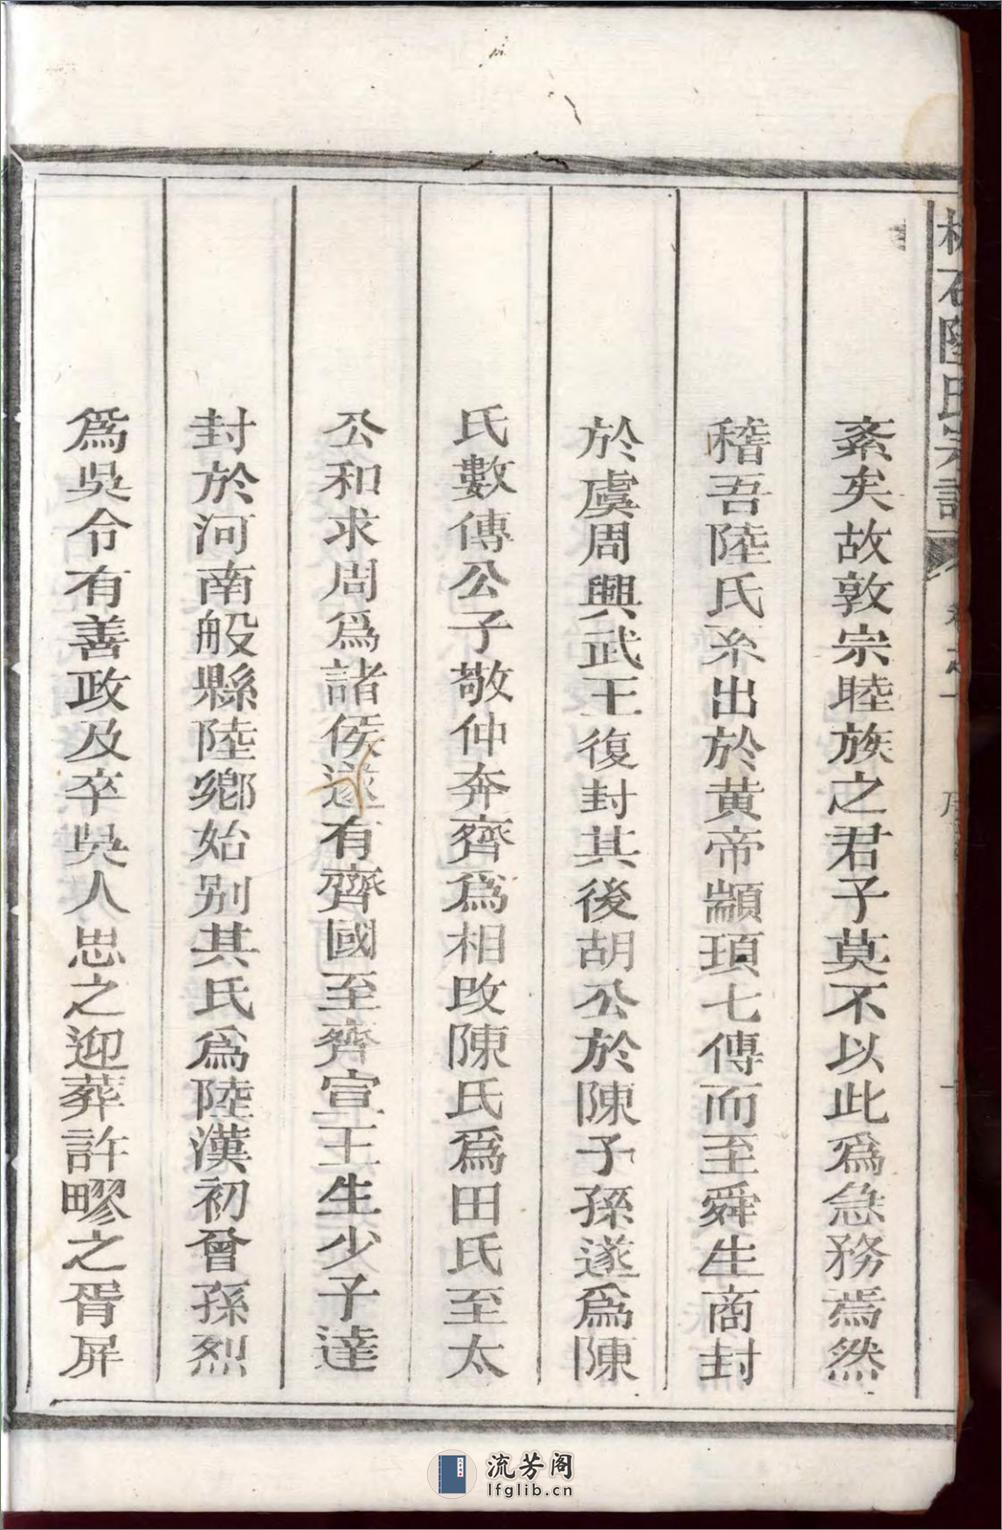 紊矣故敦宗睦族之君子莫不以此爲急務焉然
稽吾陸氏系出於黄帝顓頊七傳而至舜生商封
於虞周興武王復封其後胡公於陳子孫遂爲陳
氏數傳公子敬仲奔齊爲相改陳氏爲田氏至太
公和求周爲諸侯遂有齊國至齊宣王生少子達
封於河南般縣陸鄉始别其氏爲陸漢初曾孫烈
爲吳令有善政及卒吳人思之迎葬許疁之胥屏
流芳阁
lfglib.cn